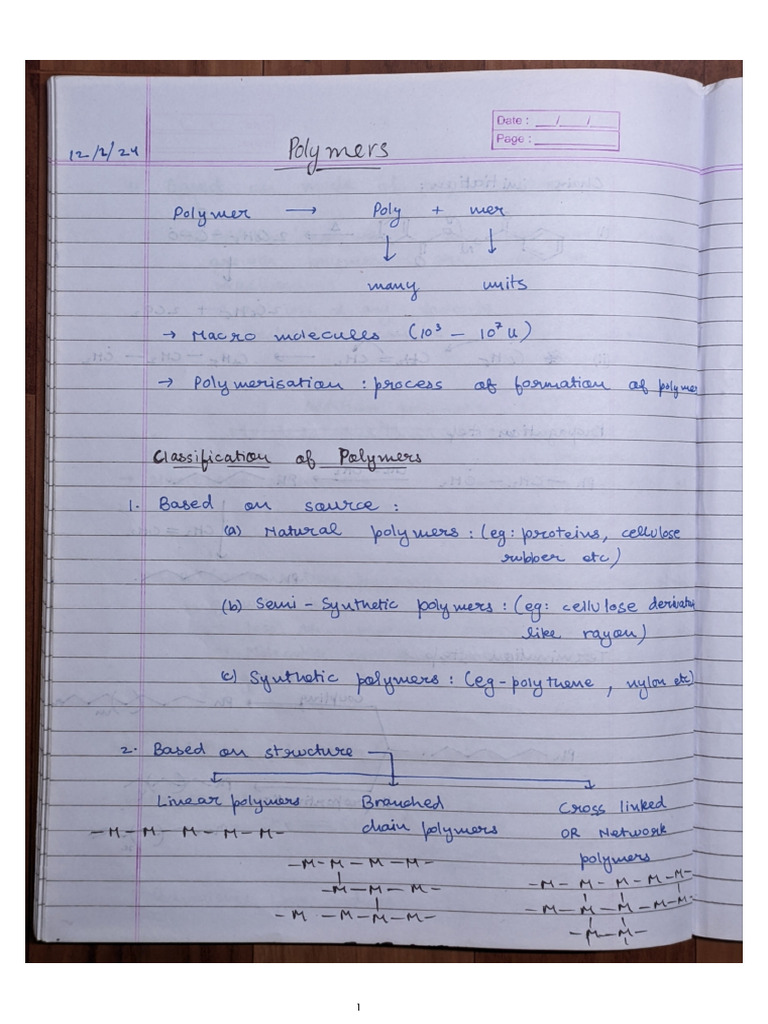 Date : __/__/__
Page : ________
12/2/24
Polymers
Polymer → Poly + mer
↓ ↓
many units
→ Macro molecules (10³ – 10⁷ u)
→ Polymerisation : process of formation of polymer
Classification of Polymers
1. Based on source :
(a) Natural polymers : (eg: proteins, cellulose
rubber etc)
(b) Semi - Synthetic polymers : (eg: cellulose
like rayon)
(c) Synthetic polymers : (eg - polythene , nylon etc)
2. Based on structure
Linear polymers Branched Cross linked
chain polymers OR Network
polymers
- M - M - M - M - M -
- M - M - M - M -
- M - M - M -
- M - M - M - M -
- M - M - M - M - M -
- M - M - M - M - M -
- M - M -
1